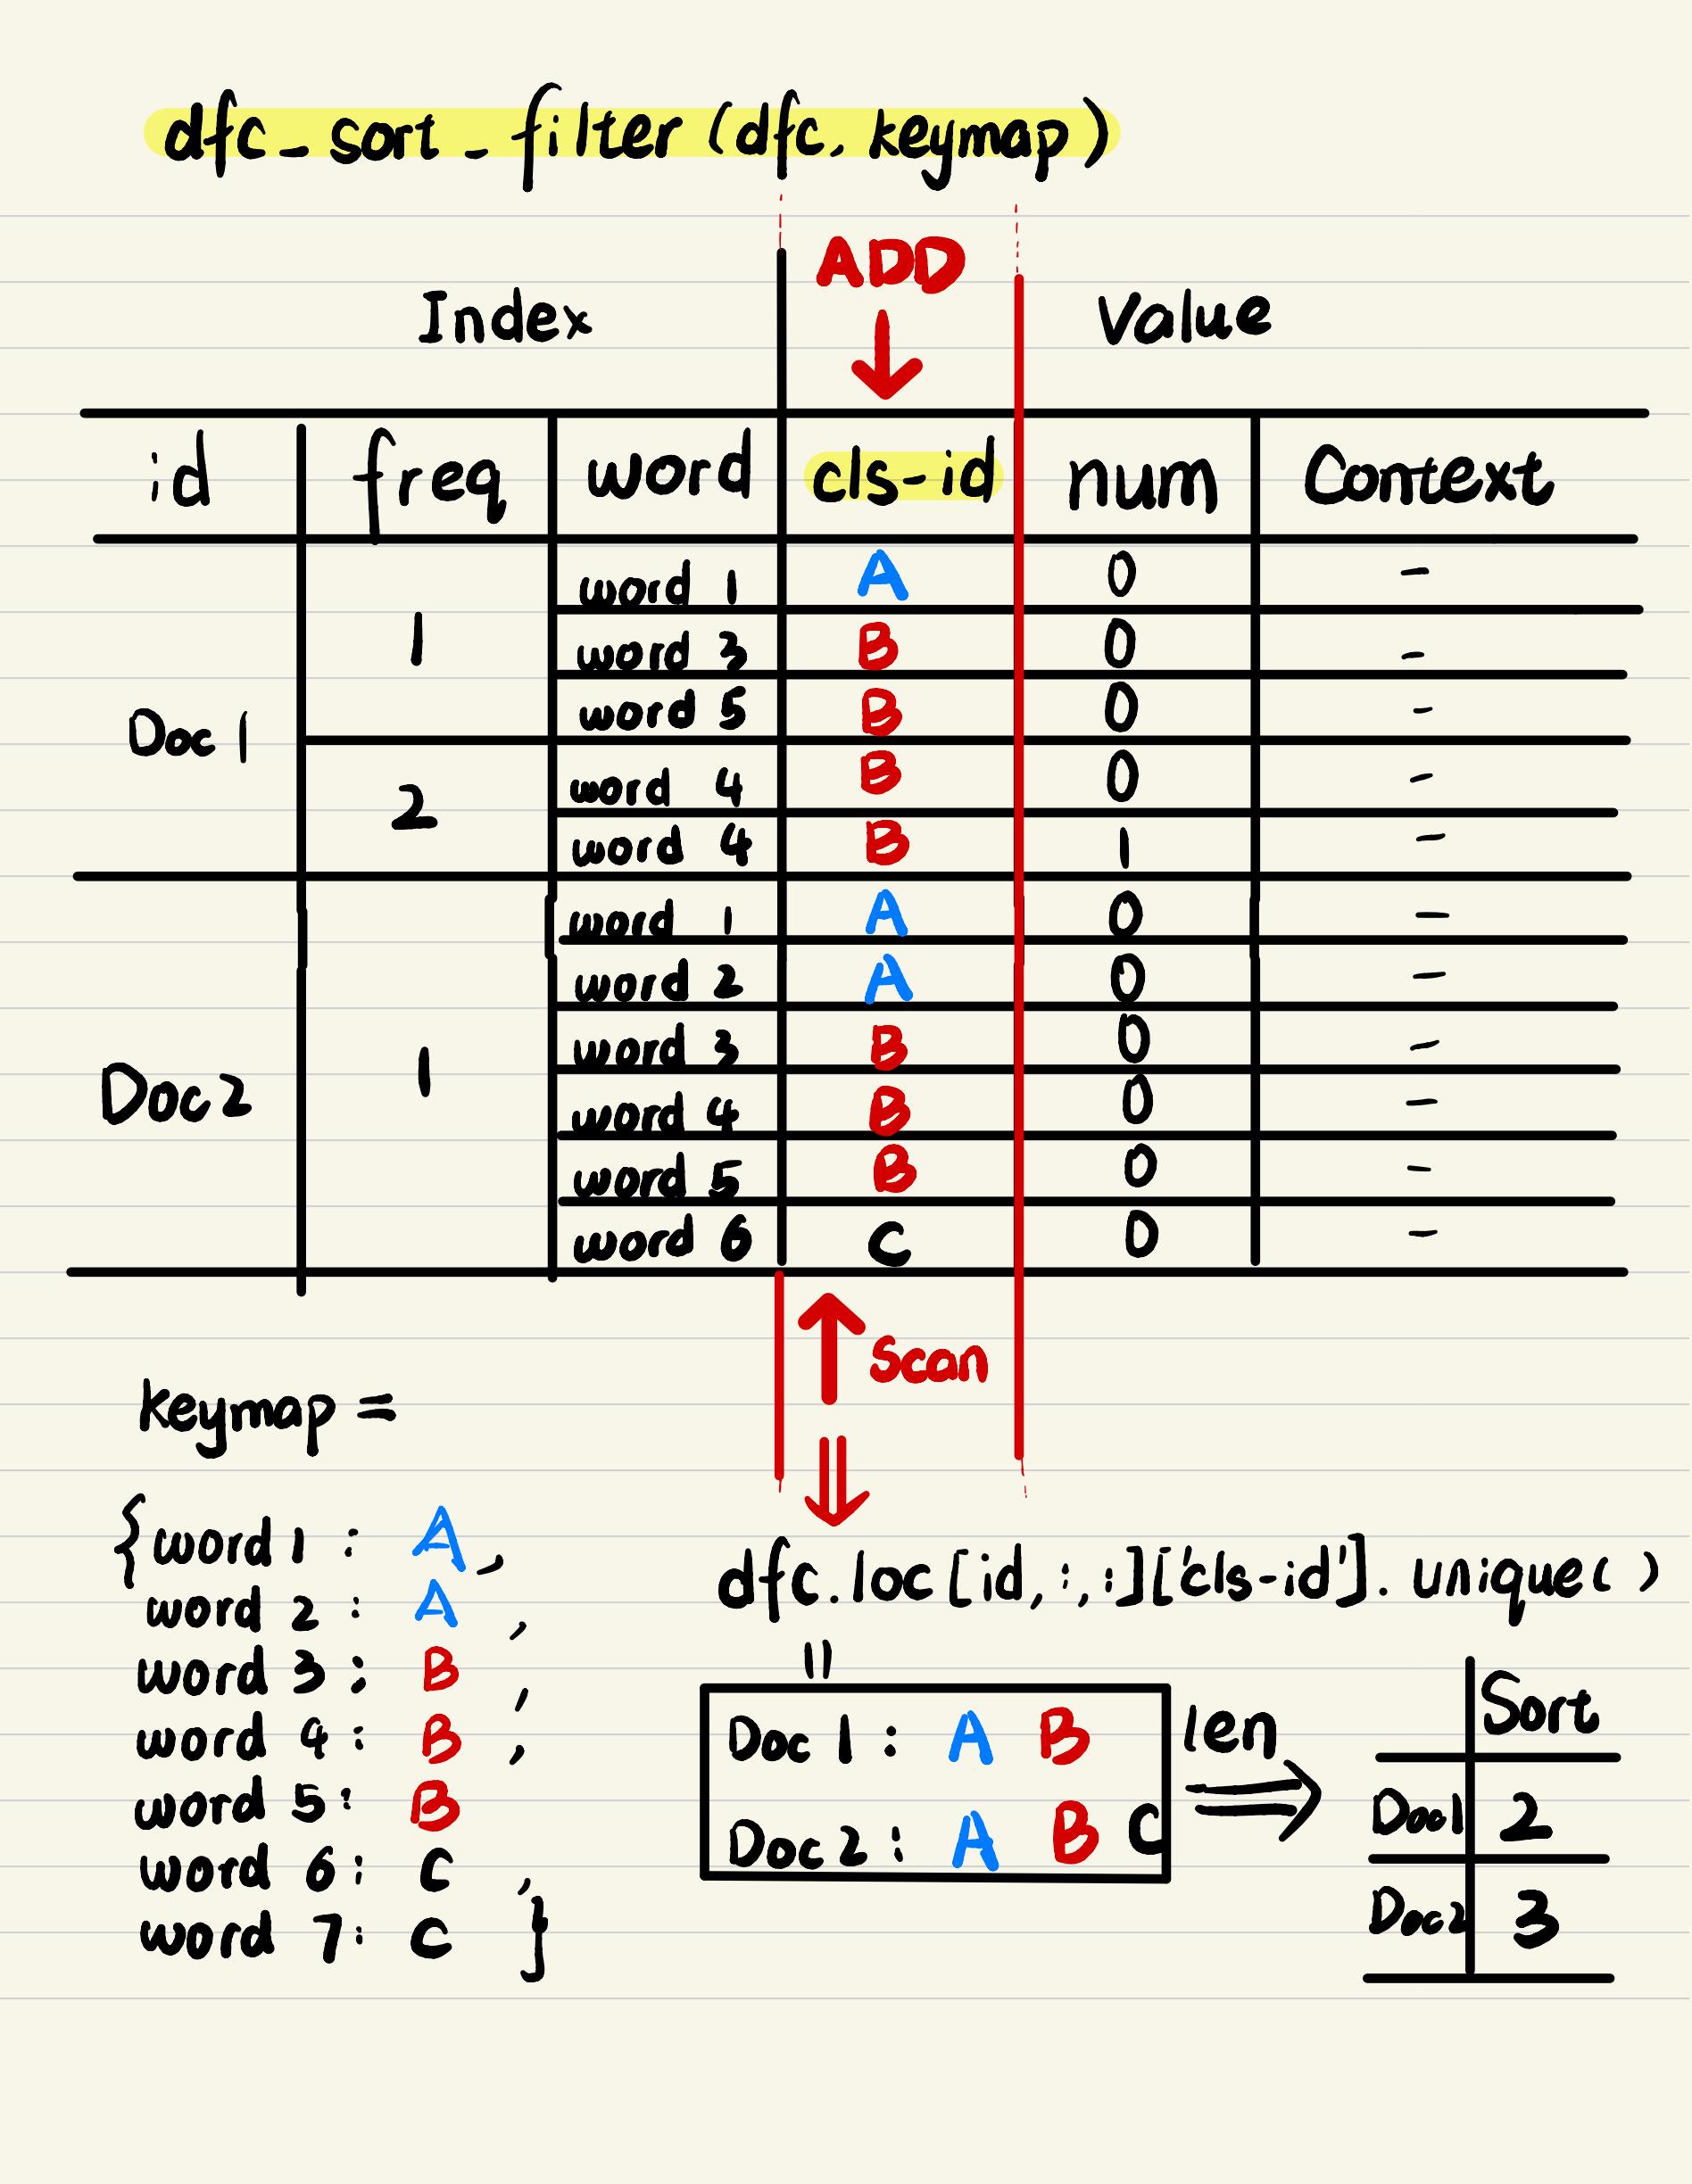 dfc_sort_filter(dfc, keymap)
ADD
Index Value
id freq word cls-id num Context
Doc 1 1 word 1 A 0 -
word 3 B 0 -
word 5 B 0 -
2 word 4 B 0 -
word 4 B 1 -
Doc 2 1 word 1 A 0 -
word 2 A 0 -
word 3 B 0 -
word 4 B 0 -
word 5 B 0 -
word 6 C 0 -
scan
keymap =
{word 1 : A,
word 2 : A,
word 3 : B,
word 4 : B,
word 5 : B
word 6 : C,
word 7 : C }
dfc.loc[id,:,:]['cls-id'].unique()
=
Doc 1 : A B
Doc 2 : A B C
len
Sort
Doc1 2
Doc2 3